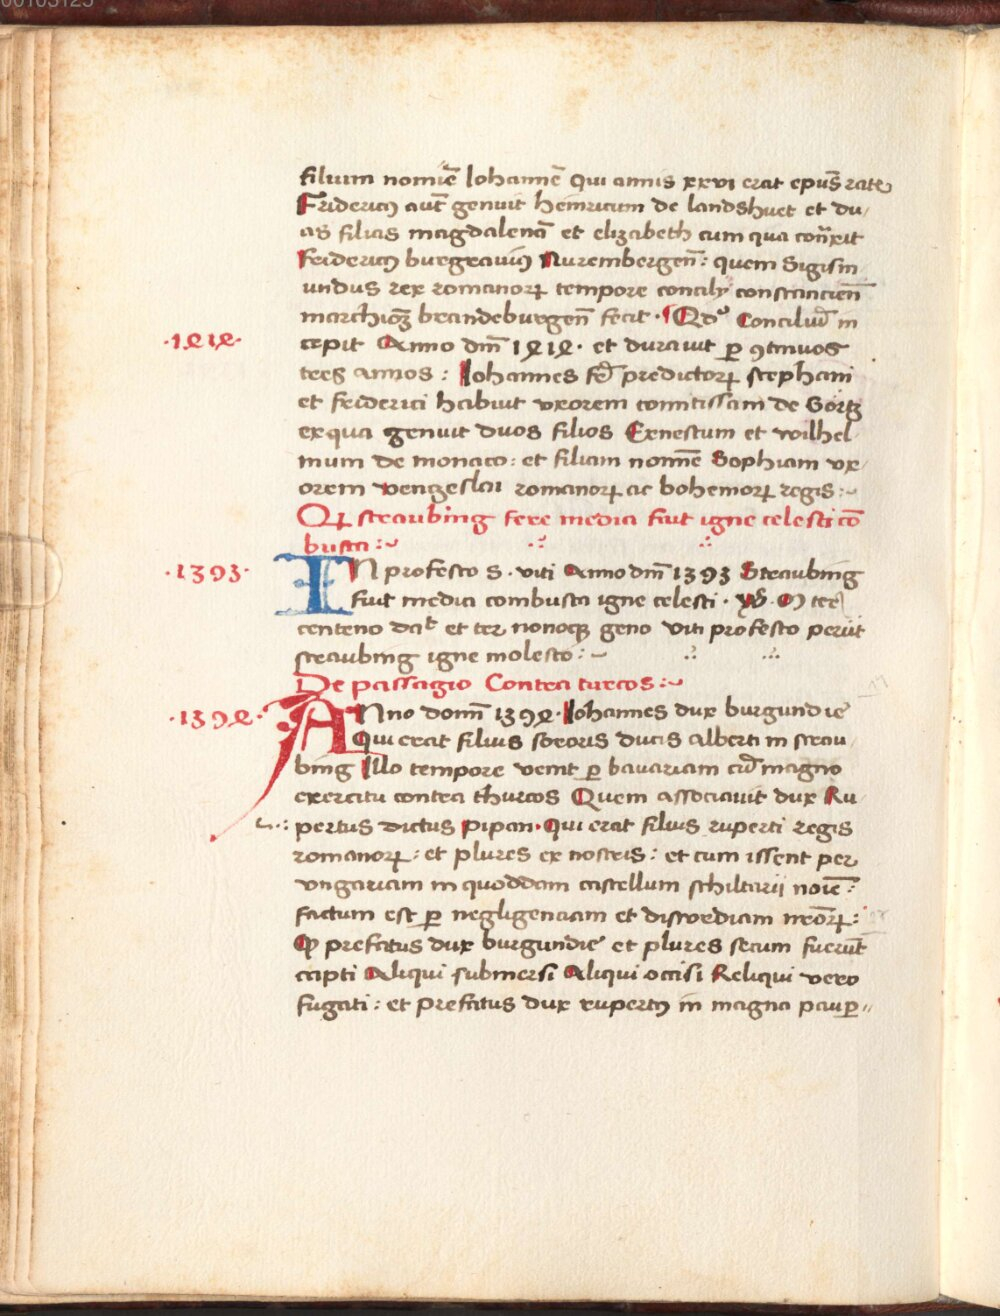 filium nomīe Iohannē qui annis xxvi erat ep̄us rate
Fridericꝯ aut̄ genuit heinricum de landshuet et du/
as filias magdalenā et elizabeth cum qua con̄xit
Fridericꝯ burgrauiꝯ Nurembergen̄: quem Sigism
undus rex romanorꝝ tempore concilij constancien̄
marchionē brandeburgen̄ fecit · Qd᷒ Conciliū in
·1414· cepit Anno dn̄i 1414· et durauit ꝑ ꝯtinuos
tres annos: Iohannes fr̄ predictorꝝ stephani
et friderici habuit vxorem comitissam de Gortz
ex qua genuit duos filios Ernestum et wilhel
mum de monaco: et filiam nomīe Sophiam vx/
orem venzeslai romanorꝝ ac bohemorꝝ regis:~
Qꝝ straubing fere media fuit igne celesti cō
busta:~
·1393· IN profesto S. viti Anno dn̄i 1393 Straubing
fuit media combusta igne celesti · M ter
centeno et ter nonoqꝫ geno viti profesto periit
straubing igne molesto:~
De passagio Contra turcos:~
·1394· ANno domī 1394· Iohannes dux burgundie
Qui erat filius sororis ducis alberti in strau/
bing Illo tempore venit ꝑ bauariam cū magno
exercitu contra thurcos Quem associauit dux Ru/
pertus dictus pipan· Qui erat filius ruperti regis
romanorꝝ: et plures ex nostris: et cum issent per
vngariam in quoddam castellum schiltarij noīe:
factum est ꝑ negligenciam et discordiam nr̄orꝝ:
Qꝫ prefatus dux burgundie et plures secum fuerūt
capti Aliqui submersi Aliqui occisi Reliqui vero
fugati: et prefatus dux rupertꝯ in magna pauꝑ//